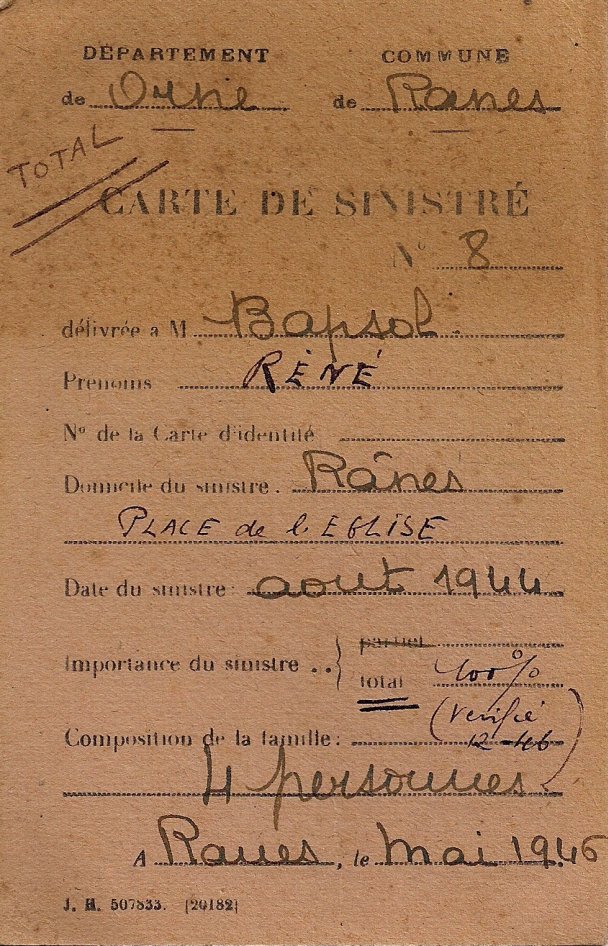 DÉPARTEMENT COMMUNE
de Orne de Ranes
TOTAL
CARTE DE SINISTRÉ
N° 8
délivrée a M Bapsol.
Prénoms RÉNÉ
N° de la Carte d'identité
Domicile du sinistre. Rânes
PLACE de l'EGLISE
Date du sinistre: août 1944
partiel
Importance du sinistre ..
total 100%
(Verifié
Composition de la famille: 12-46)
4 personnes
A Ranes, le Mai 1946
J. H. 507833. [20182]